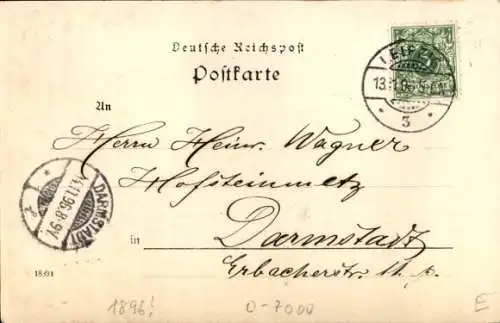 Deutsche Reichspost
Postkarte
LEIPZIG
13.11.96. 5-6N.
3
An
Herrn Heinr. Wagner
Hofsteinmetz
in Darmstadt
Erbacherstr.
DARMSTADT
14.11.96. 8-9V.
1896!
0-7000
E